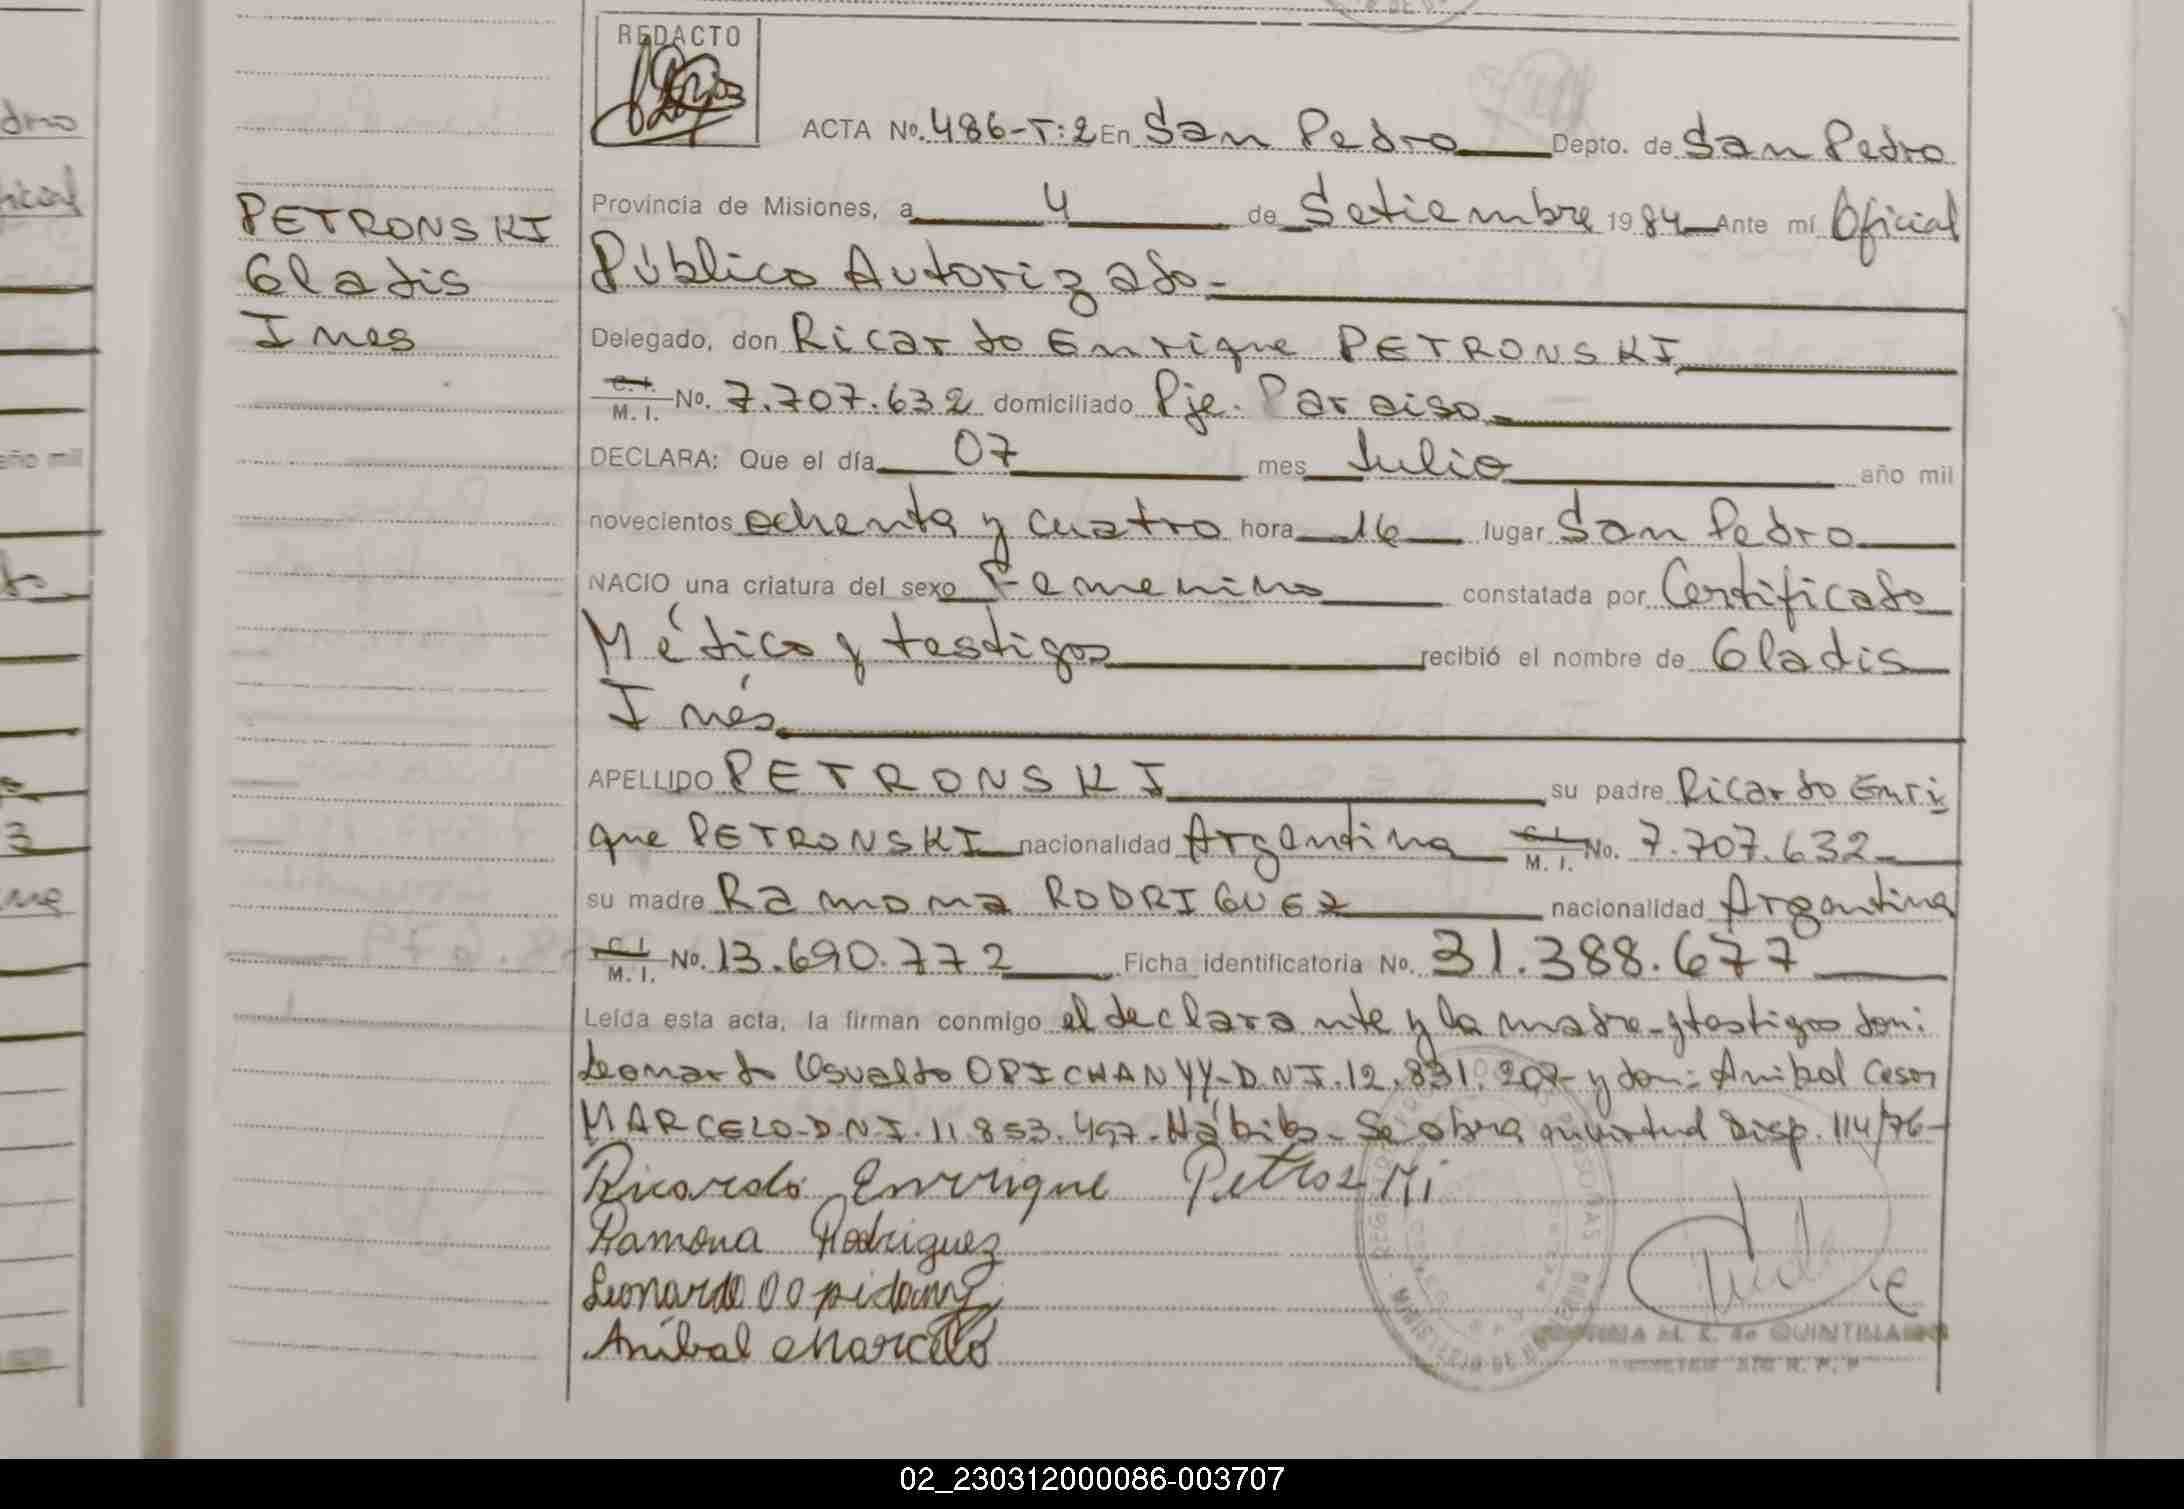 REDACTO
ACTA No. 486-T:2 En San Pedro Depto. de San Pedro
Provincia de Misiones, a 4 de Setiembre 1984 Ante mí Oficial
Público Autorizado.-
Delegado, don Ricardo Enrique PETRONSKI
C. I. M. I. No. 7.707.632 domiciliado Pje. Paraiso
DECLARA: Que el día 07 mes Julio año mil
novecientos ochenta y cuatro hora 16 lugar San Pedro
NACIO una criatura del sexo Femenino constatada por Certificado
Médico y testigos recibió el nombre de Gladis
Inés
APELLIDO PETRONSKI su padre Ricardo Enri
que PETRONSKI nacionalidad Argentina C. I. M. I. No. 7.707.632
su madre Ramona RODRIGUEZ nacionalidad Argentina
C. I. M. I. No. 13.690.772 Ficha identificatoria No. 31.388.677
Leída esta acta, la firman conmigo el declarante y la madre-y testigos don:
Leonardo Osvaldo OPICHANYY-D.N.I. 12.831.207- y don: Anibal Cesar
MARCELO-D.N.I. 11.853.497.-Hábiles-Se obra en virtud Disp. 114/76-
Ricardo Enrrique
Ramona Rodriguez
Leonardo O
Aníbal Marcelo
PETRONSKI
Gladis
Ines
dro
icial
año mil
3
DE QUINTINA
02_230312000086-003707